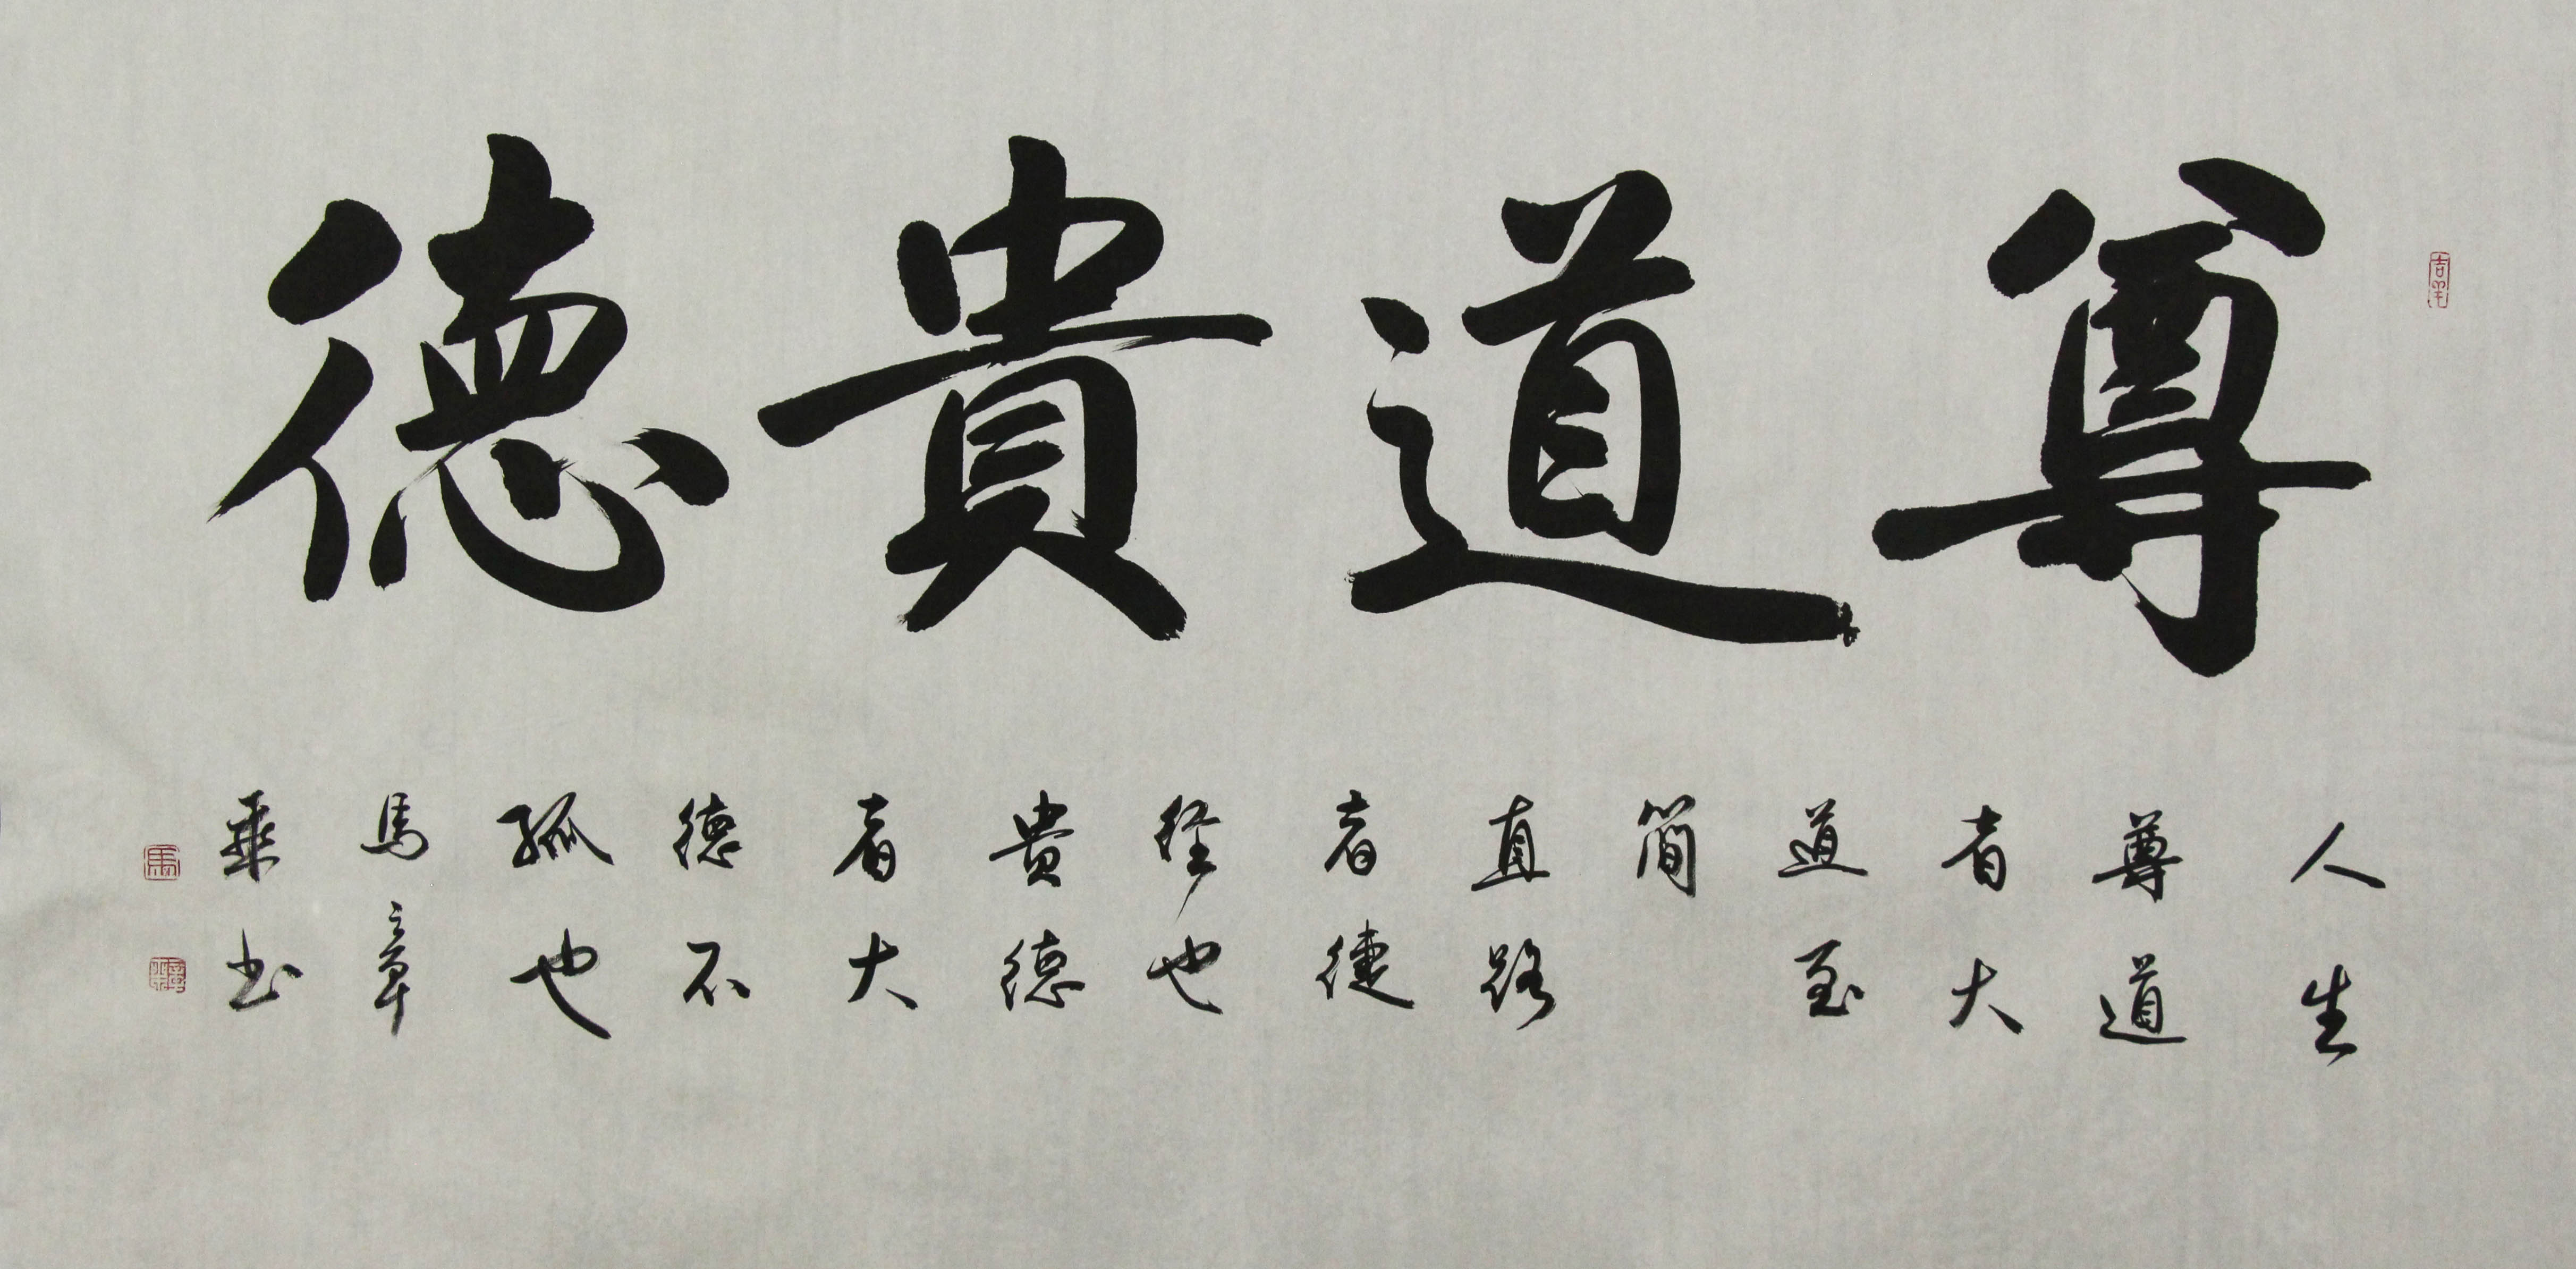 尊道貴德
人生
尊道
者大
道至
簡
直路
者捷
徑也
貴德
者大
德不
孤也
馬章
乘书
吉羊
馬